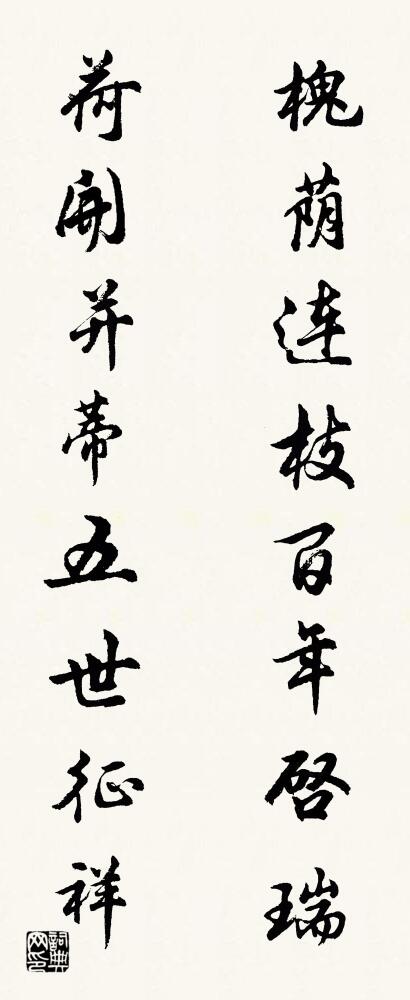 槐荫连枝百年启瑞
荷開并蒂五世征祥